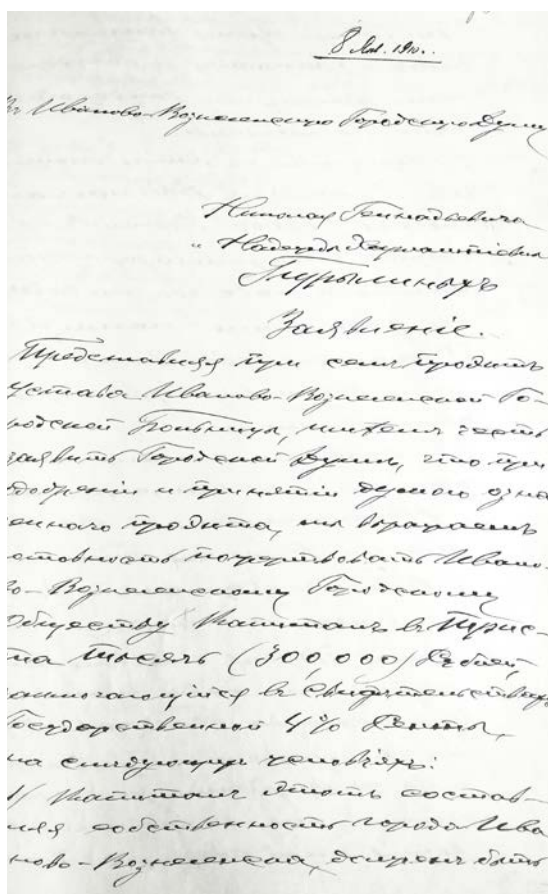 8 Янв. 1910 г.
Въ Иваново-Вознесенскую Городскую Думу
Николая Геннадьевича
и Надежды Харлампіевны
Бурылиныхъ
Заявленіе.
Представляя при семъ проэктъ
Устава Иваново-Вознесенской Го-
родской Больницы, имѣемъ честь
заявить Городской Думѣ, что при
одобреніи и принятіи Думою озна
ченнаго проэкта, мы выражаемъ
готовность пожертвовать Ивано-
во-Вознесенскому Городскому
Обществу Капиталъ въ Трис-
та тысячъ (300,000) Рублей,
заключающійся въ свидѣтельствахъ
Государственной 4% Ренты,
на слѣдующихъ условіяхъ:
1/ Капиталъ этотъ состав-
ляя собственность города Ива
ново-Вознесенска, долженъ быть